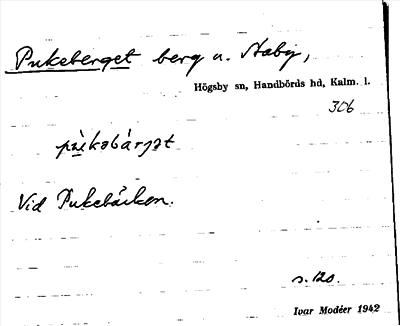 Pukeberget berg u. Staby,
Högsby sn, Handbörds hd, Kalm. l.
306
pù̀kabárjət
Vid Pukebäcken.
s. 120.
Ivar Modéer 1942